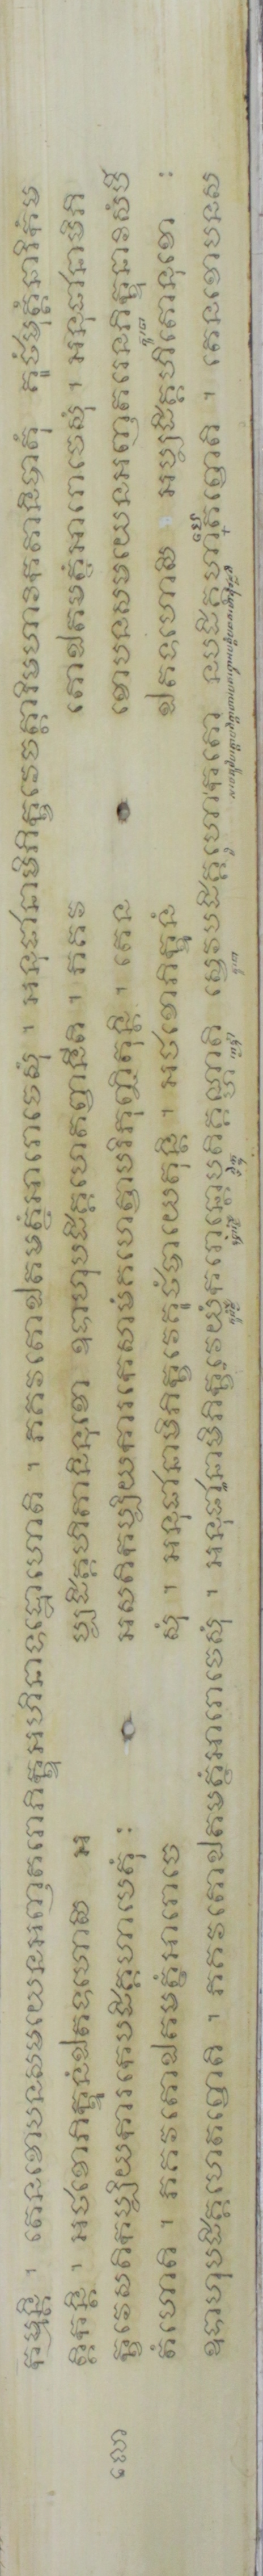 កម្មន្តិ ។ តេនខោបនសមយេនអញ្ញតរោភិក្ខុអហិនាទដ្ឋោហោតិ ។ ភគវតោឯតមត្ថំអារោចេសុំ ។ អនុជានាមិភិក្ខវេចត្តារិមហាវិកតានិទាតុំ គូថំមុត្តំឆារិកំម
ត្តិកន្តិ ។ អថខោភិក្ខូនំឯតទហោសិ អ ប្បដិគ្គហិតានិនុខោ ឧទាហុបដិគ្គហេតញានីតិ ។ ភគវ តោឯតមត្ថំអារោចេសុំ ។ អនុជានាមិភិ
លោ ក្ខវេសតិកប្បិយការកេបដិគ្គហាបេតុំ ៖ អសតិកប្បិយការកេសាមំគហេត្វាបរិភុញ្ជិតុន្តិ ។ តេន ខោបនសមយេនអញ្ញតរេនភិក្ខុនាវិសំបី
តំហោតិ ។ ភគវតោឯតមត្ថំអារោចេ សុំ ។ អនុជានាមិភិក្ខវេគូថំបាយេតុន្តិ ។ អថខោភិក្ខូនំ ឯតទហោសិ អប្បដិគ្គហិតោនុខោ ៖
ឧទាហុបដិគ្គហេតញោតិ ។ ភគវតោឯតមត្ថំអារោចេសុំ ។ អនុជានាមិភិក្ខវេយំករោន្តោបតិគ្គណ្ហាតិ ស្វេវបដិគ្គហោកតោ នបដិគ្គហាតញោតិ ។ តេនខោបនស